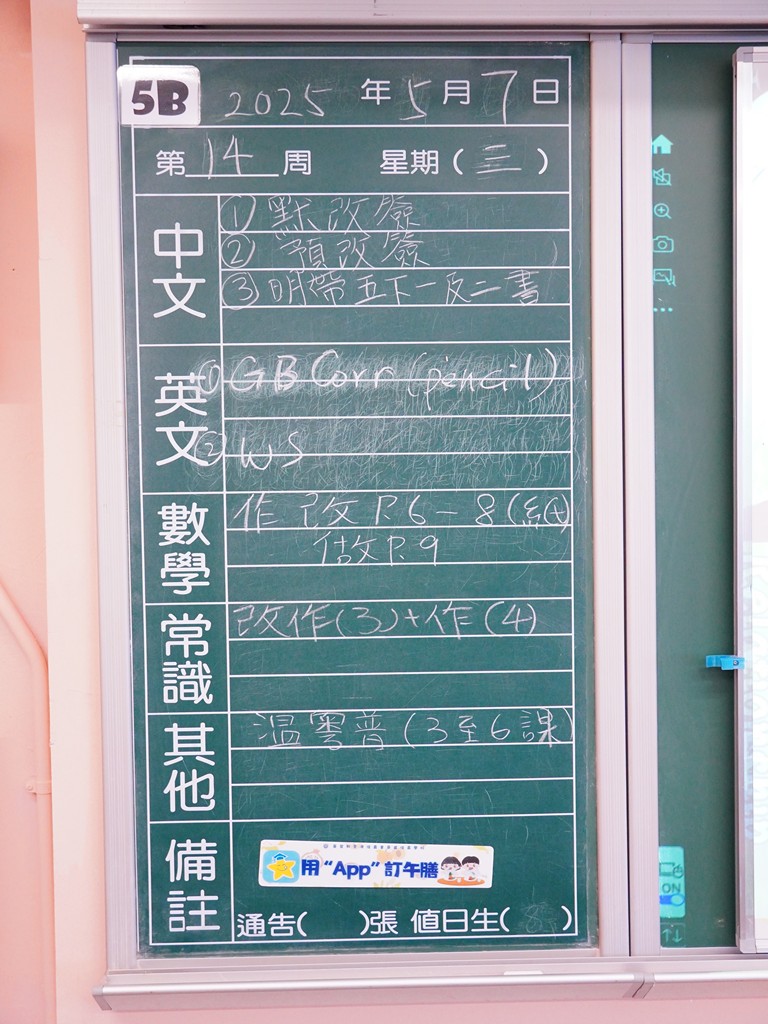 5B 2025 年 5 月 7 日
第 14 周 星期(三)
中文
① 默改簽
② 預改簽
③ 明帶五下一及二書
英文
① GB Corr (pencil)
② WS
數學
作改P.6-8(紅)
做P.9
常識
改作(3)+作(4)
其他
温粵普(3至6課)
備註
用“App”訂午膳
通告( )張 值日生( )
ON